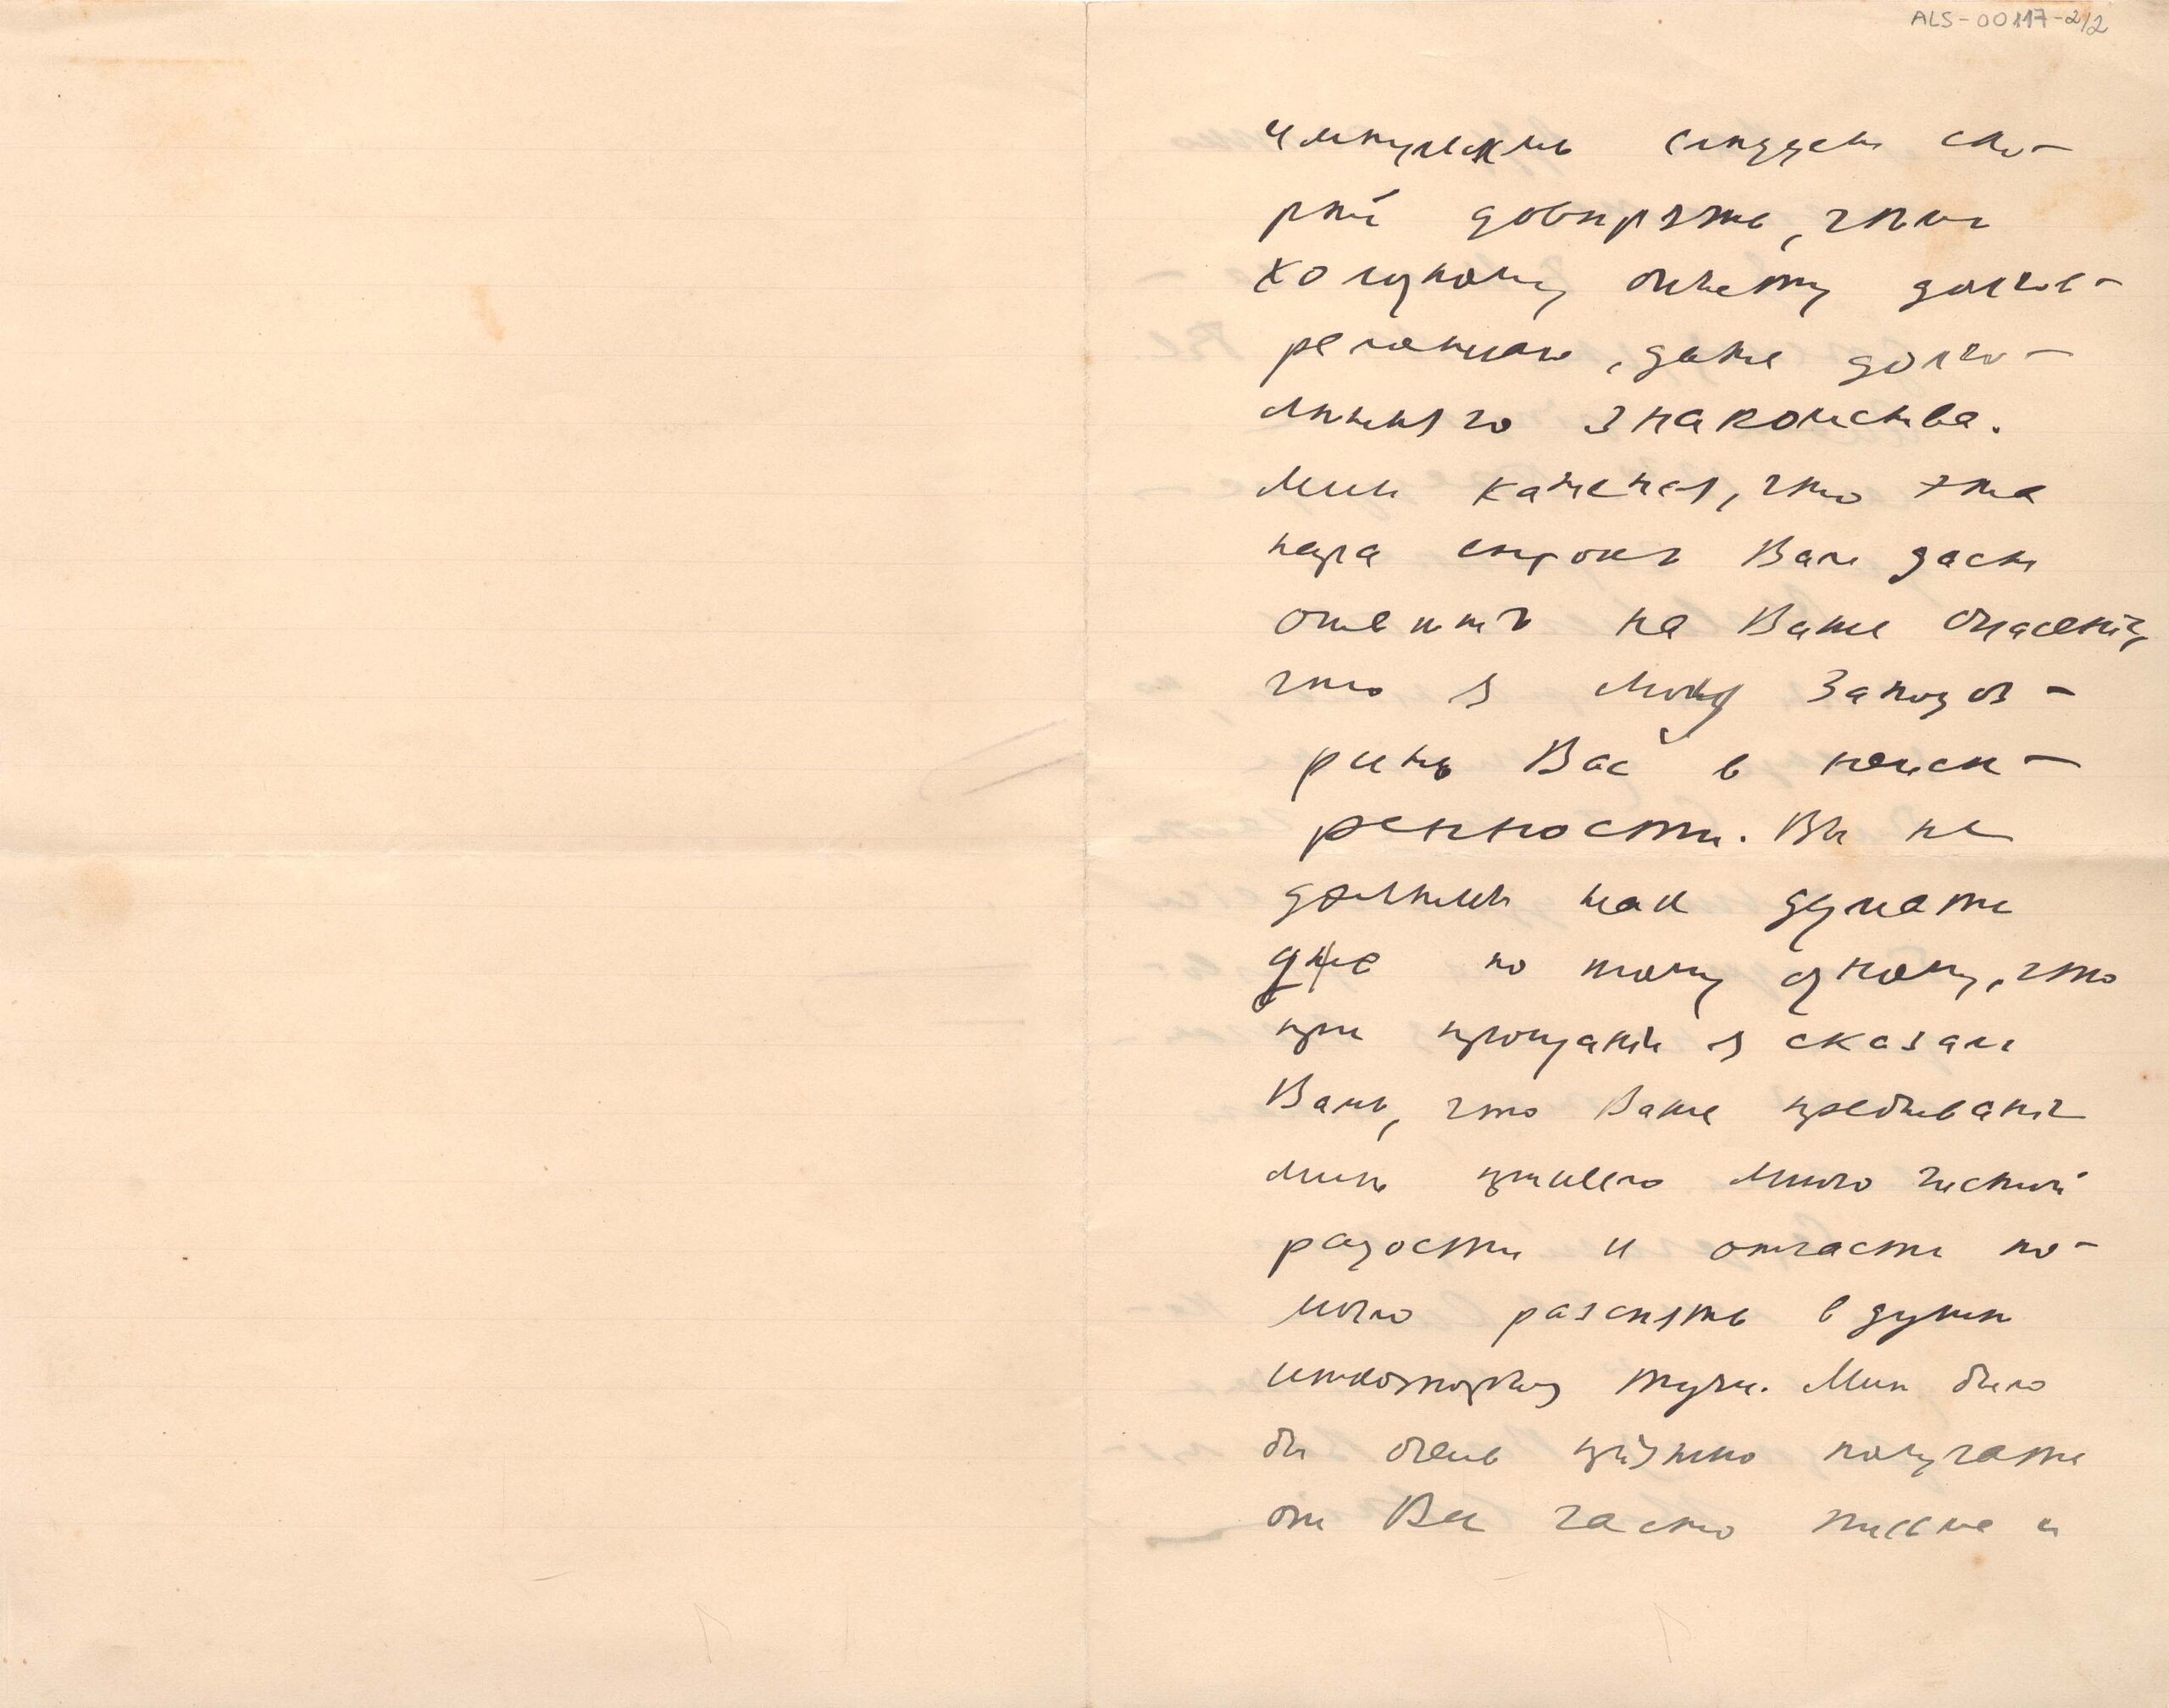 ALS-00117-2/2
импульсамъ следуетъ ско-
рѣй довѣрять, чѣмъ
холодному опыту долго-
ременнаго, даже долго-
лѣтняго знакомства.
Мнѣ кажется, что эта
пара строкъ Вам даст
отвѣтъ на Ваше опасеніе,
что я могу заподоз-
рить Вас в неиск-
ренности. Вы не
должны так думать
уже по тому одному, что
при прощаніи я сказал
Вамъ, что Ваше пребываніе
мнѣ принесло много чистой
радости и отчасти по-
могло разсѣять в душѣ
нѣкоторыя тучи. Мнѣ было
бы очень пріятно получать
от Вас часто письма и